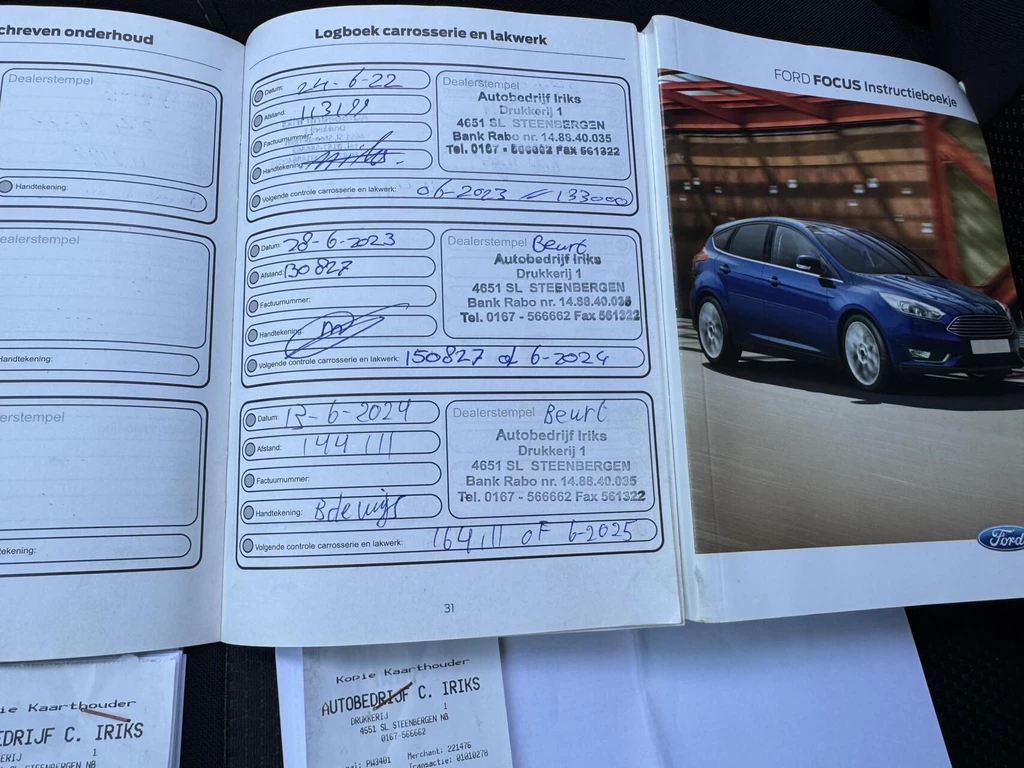 chreven onderhoud
Dealerstempel
Handtekening:
ealerstempel
Handtekening:
erstempel
tekening:
Logboek carrosserie en lakwerk
Datum: 24-6-22
Afstand:
Factuurnummer:
Handtekening:
Volgende controle carrosserie en lakwerk: 06-2023 // 133000
Dealerstempel
Autobedrijf Iriks
Drukkerij 1
4651 SL STEENBERGEN
Bank Rabo nr. 14.88.40.035
Tel. 0167 - 566662 Fax 561322
Datum: 28-6-2023
Afstand: 130827
Factuurnummer:
Handtekening:
Volgende controle carrosserie en lakwerk: 150827 of 6-2024
Dealerstempel Beurt
Autobedrijf Iriks
Drukkerij 1
4651 SL STEENBERGEN
Bank Rabo nr. 14.88.40.035
Tel. 0167 - 566662 Fax 561322
Datum: 13-6-2024
Afstand: 144111
Factuurnummer:
Handtekening:
Volgende controle carrosserie en lakwerk: 164111 OF 6-2025
Dealerstempel Beurt
Autobedrijf Iriks
Drukkerij 1
4651 SL STEENBERGEN
Bank Rabo nr. 14.88.40.035
Tel. 0167 - 566662 Fax 561322
31
FORD FOCUS Instructieboekje
Ford
ie Kaarthouder
EDRIJF C. IRIKS
ERIJ 1
EENBERGEN NB
Kopie Kaarthouder
AUTOBEDRIJF C. IRIKS
DRUKKERIJ 1
4651 SL STEENBERGEN NB
0167-566662
al: PW3401 Merchant: 221476
Transactie: 01010278